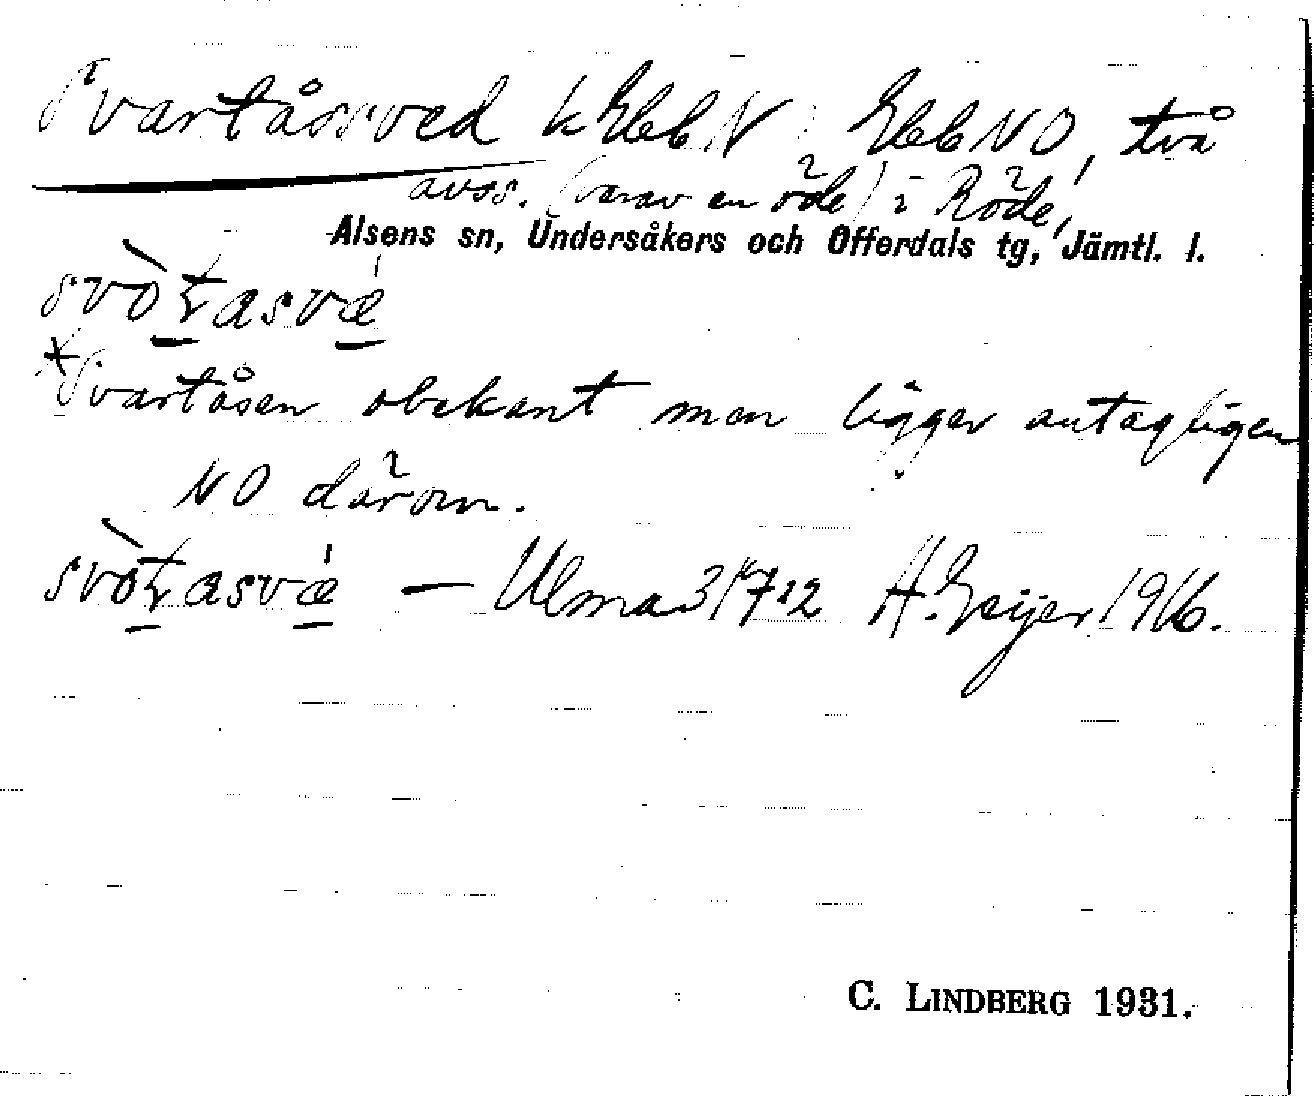 Svartåsved k EkbN, EkbNO, två
avss. (varav en öde) i Röde,
Alsens sn, Undersåkers och Offerdals tg, Jämtl. l.
svòʈasvæ
*Svartåsen obekant men ligger antagligen
NO därom.
svòʈasvæ — Ulma 317:12 A. Geijer 1916.
C. LINDBERG 1931.